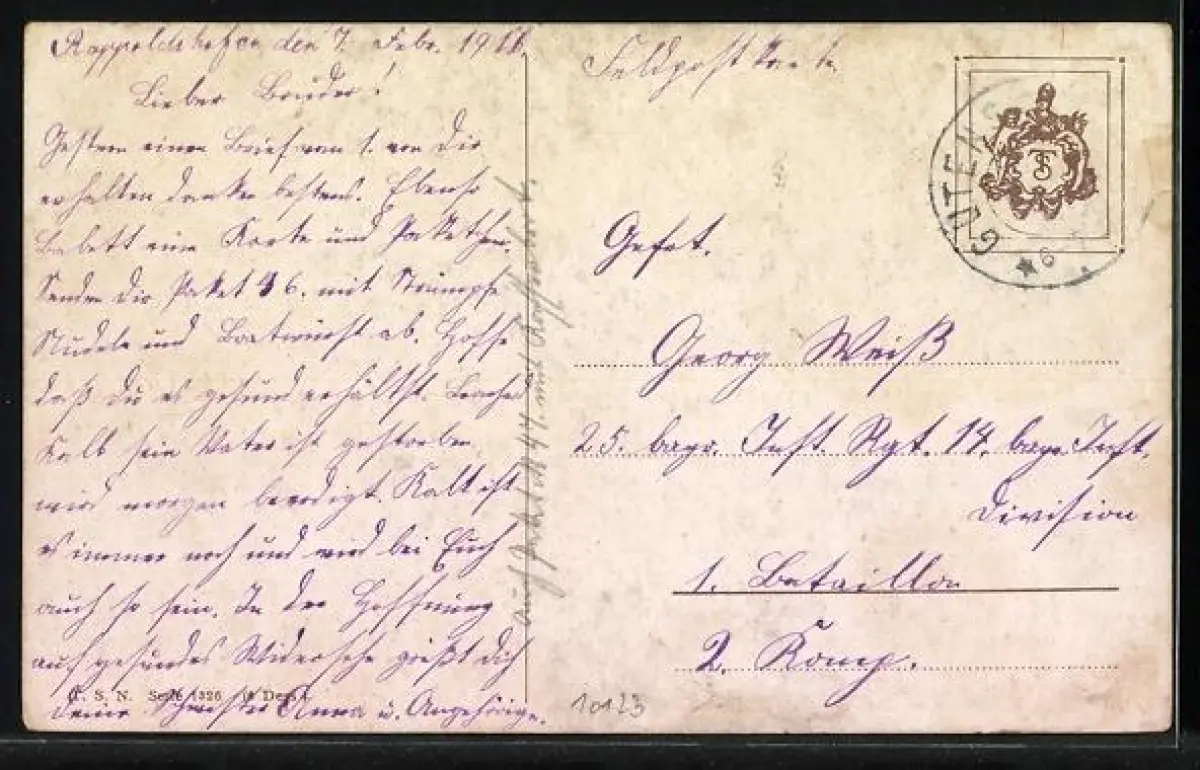 Rappoldshofen den 7. Febr. 19
Lieber Bruder!
Gestern einen Brief vom 1. von Dir
erhalten danke bestens. Ebenso
Babett eine Karte und Paketchen.
Sende Dir Paket 46. mit Strümpfe
Nudeln und Bratwürst ab. Hoffe
daß du es gesund erhältst.
Kalb sein Vater ist gestorben
wird morgen beerdigt. Kalt ist
es immer noch und wird bei Euch
auch so sein. In der Hoffnung
auf gesundes Widersehe grüßt dich
deine Schwester Anna u. Angehörige.
S. N. Serie 1326 (6 Dess.)
auch Paket 44. mit
Feldpostkarte
GUTENS
6
TS
Gefrt.
Georg Weiß
25. bayr. Inft. Rgt. 14. bayr. Inft.
Division
1. Bataillon
2. Komp.
10123